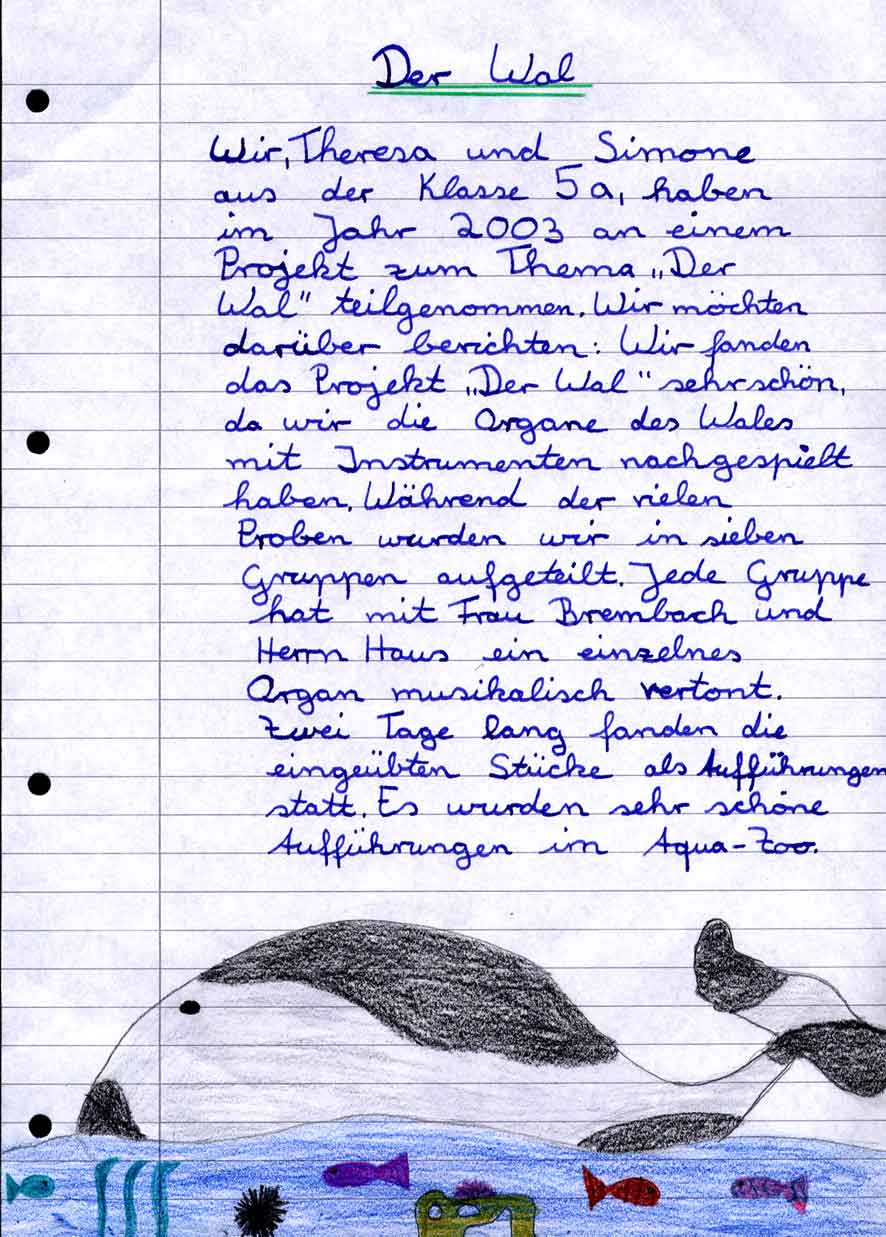 Der Wal
Wir, Theresa und Simone
aus der Klasse 5a, haben
im Jahr 2003 an einem
Projekt zum Thema „Der
Wal" teilgenommen. Wir möchten
darüber berichten: Wir fanden
das Projekt „Der Wal" sehr schön,
da wir die Organe des Wales
mit Instrumenten nachgespielt
haben. Während der vielen
Proben wurden wir in sieben
Gruppen aufgeteilt. Jede Gruppe
hat mit Frau Brembach und
Herrn Haus ein einzelnes
Organ musikalisch vertont.
Zwei Tage lang fanden die
eingeübten Stücke als Aufführungen
statt. Es wurden sehr schöne
Aufführungen im Aqua-Zoo.